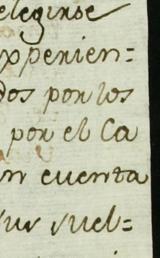 elegirse
xperien=
dos por los
por el Ca
n cuenta
sus suel=